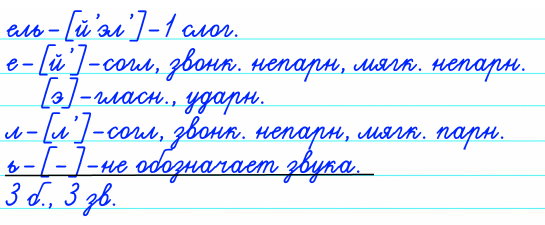 ель – [й'эл'] – 1 слог.
е – [й'] – согл, звонк. непарн, мягк. непарн.
[э] – гласн., ударн.
л – [л'] – согл, звонк. непарн, мягк. парн.
ь – [ – ] – не обозначает звука.
3 б., 3 зв.